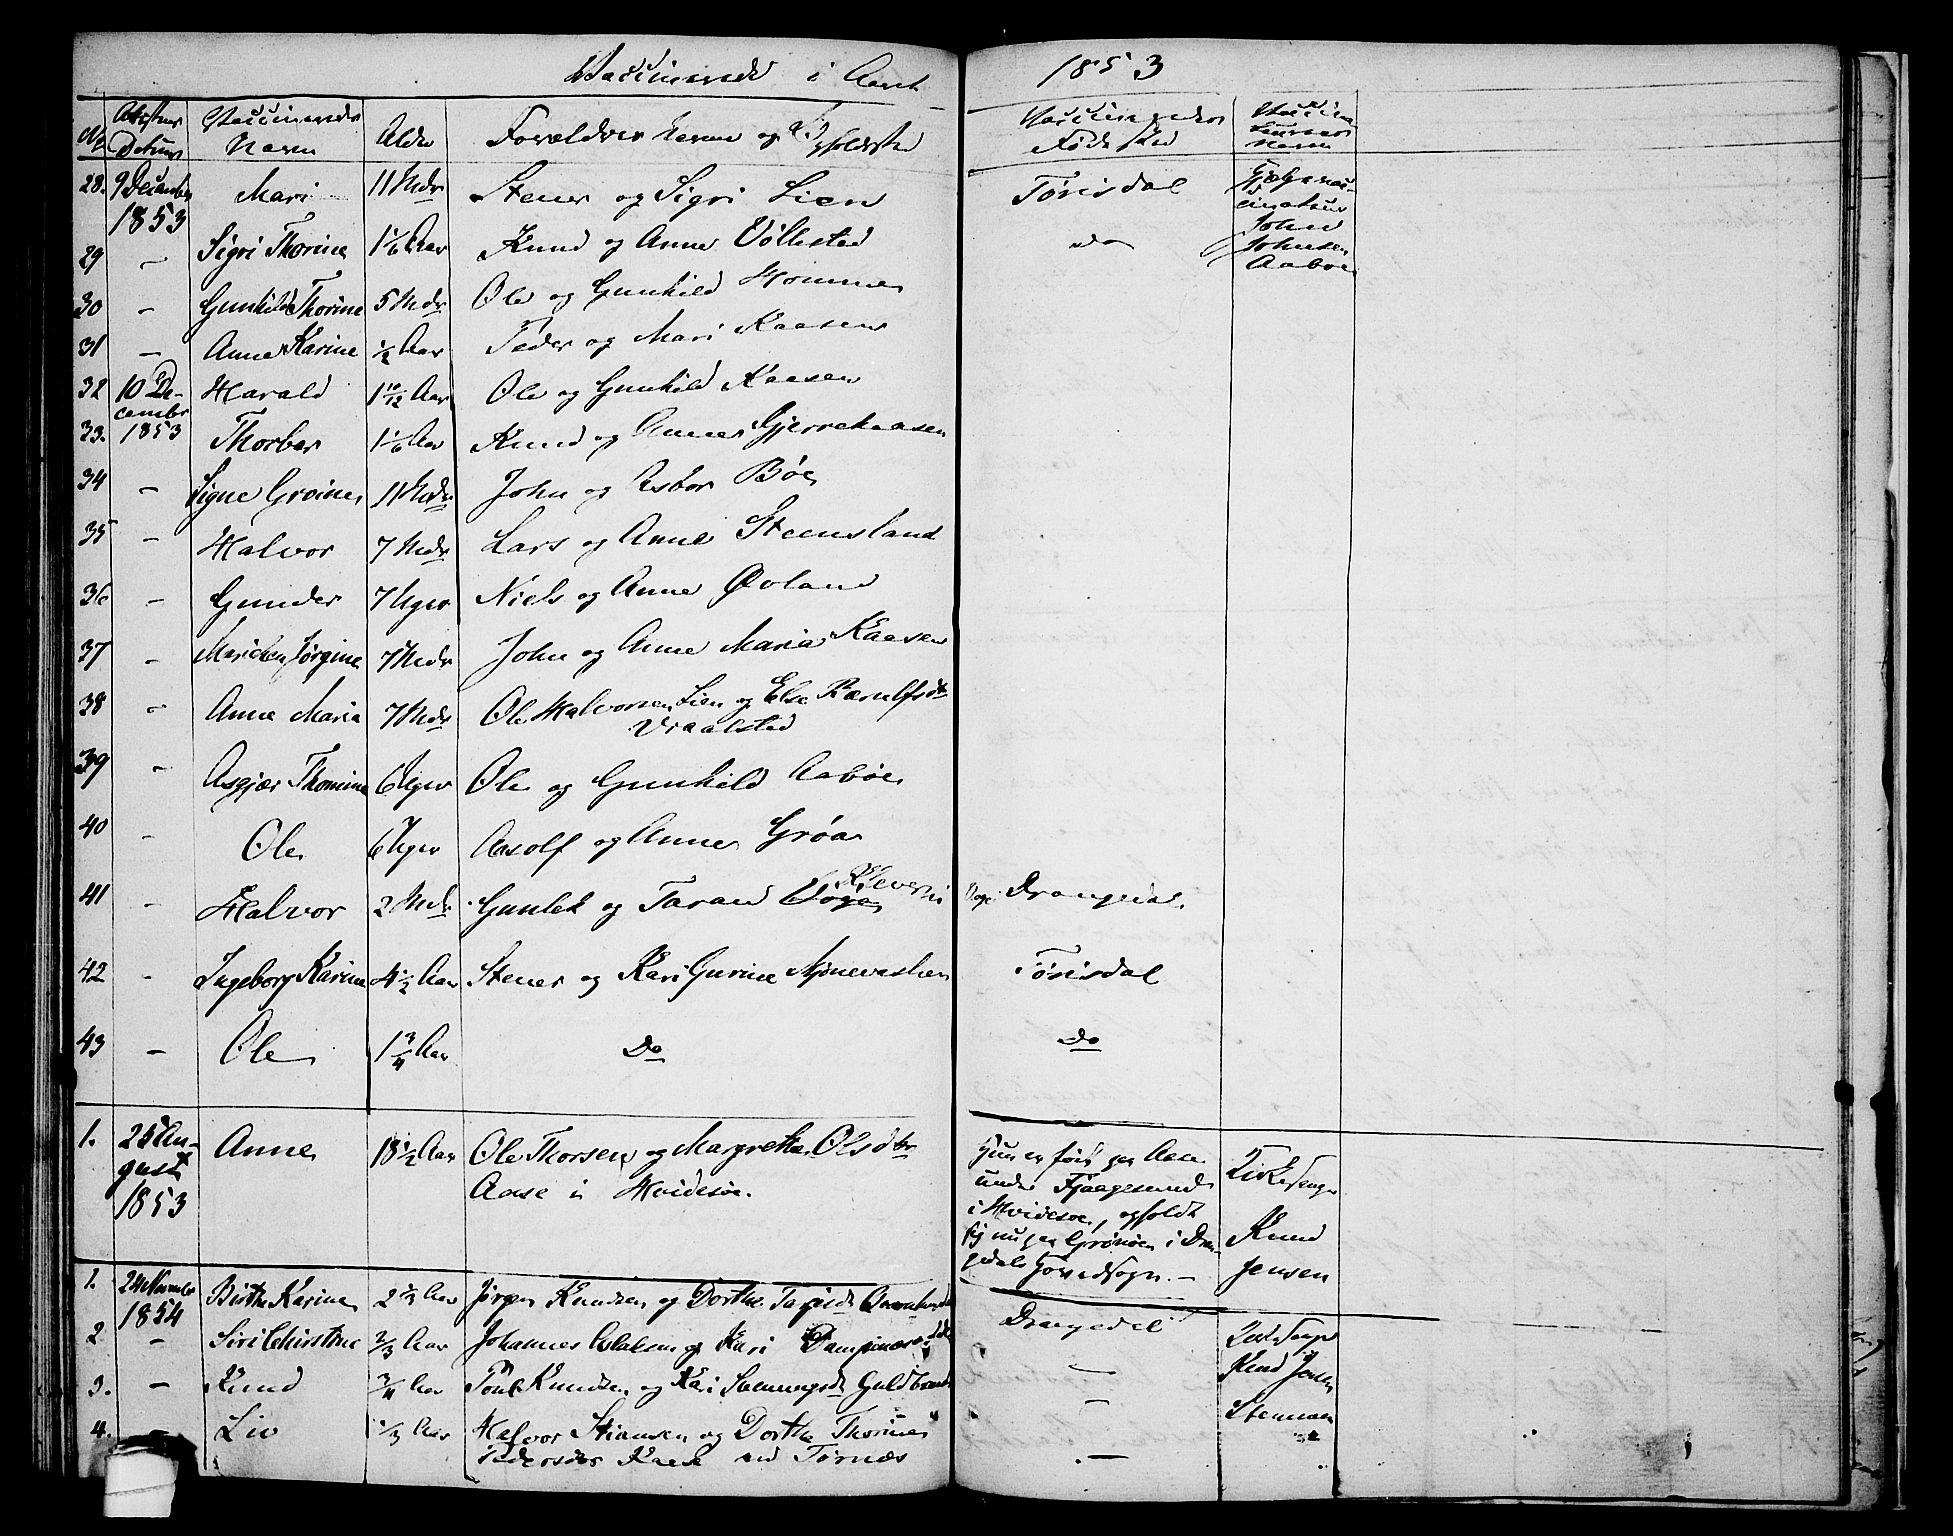 Vaccinerede i Aaret 1853
No Attestens Datum Vaccineredes Navn Alder Forældres Navne og Opholdsted Vaccineredes Fødested Vaccinateurens Navn
28. 9 December 1853 Mari 11 Mdr Stener og Sigri Lien Tørisdal Hjelpevaccinateur John Johnsen Aaboe
29 - Sigri Thorine 1 1/6 Aar Knud og Anne Vøllestad do
30 - Gunhild Thorine 5 Mdr Ole og Gunhild Homme
31 - Anne Karine 1/2 Aar Peder og Mari Kaasen
32 10 December 1853 Harald 1 10/12 Aar Ole og Gunhild Kaasen
33. Thorber 1 1/6 Aar Knud og Anne Gjerrekaasen
34 - Signe Groine 11 Mdr John og Asbor Bøe
35 - Halvor 7 Mdr Lars og Anne Steensland
36 - Gunder 7 Uger Niels og Anne Øvland
37 - Marichen Jørgine 7 Mdr John og Anne Maria Kaasen
38 - Anne Maria 7 Mdr Ole Halvorsen Lien og Else Rærulfsdtr
Vraalsted
39 - Asgjær Thomine 6 Uger Ole og Gunhild Aaboe
40 - Ole 6 Uger Aasolf og Anne Grøa
41 - Halvor 2 Mdr Gunlek og Taran Kleven i Drangedal
42 - Ingeborg Karine 4 1/2 Aar Stener og Kari Gurine Tørisdal
43 - Ole 1 3/4 Aar Do Do
1. 25 August 1853 Anne 18 1/2 Aar Ole Thorsen og Margrethe Olsdtr
Aase i Hvidesøe.
Hun er født paa Aase
under Fjaagesund
i Hvidesøe, opholdt
sig nu paa Grønåen i Dran-
gedals Hovedsogn. -
Kirkesanger
Knud
Jensen
1. 24 1854 Birthe Karine 2 1/3 Aar Jørgen Knudsen og Dorthe Drangedal
2 - Siri Christine 2/3 Aar Johannes Aslaksen og Kari Kirkesanger
3. - Knud 3/4 Aar Poul Knudsen og Kari - Knud Jensen
4. - Liv 1/3 Aar Halvor Stiansen og Dorthe Thorine
Pedersdtr Kaasa ved Tørnæs -